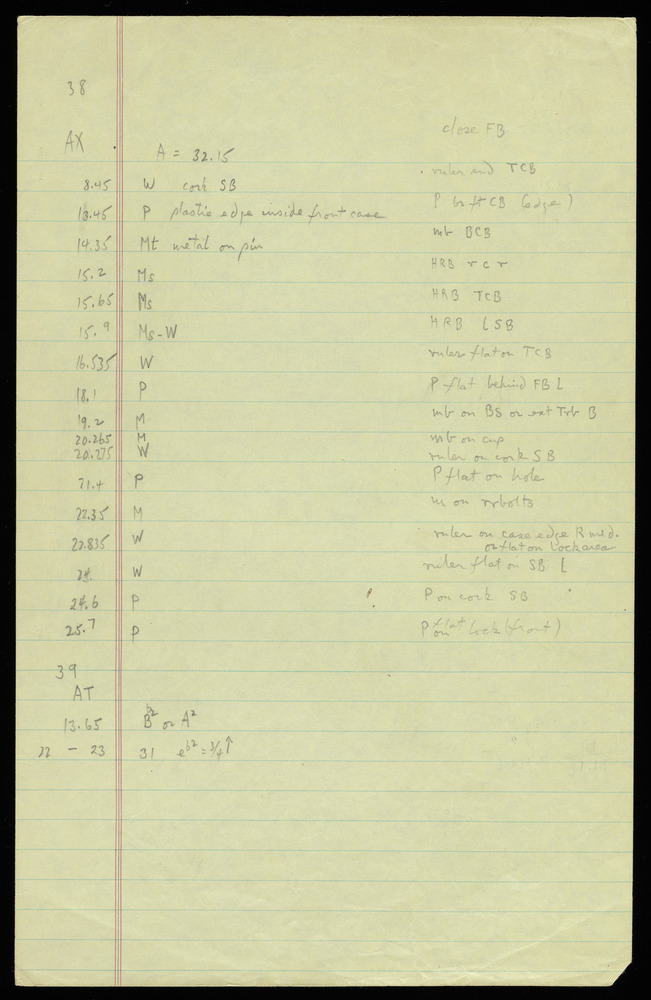 38
close FB
AX
A = 32.15
ruler end TCB
8.45 W cork SB
13.45 P plastic edge inside front case
P bo ft CB (edge)
mb BCB
14.35 Mt metal on pin
HRB r c r
15.2 Ms
15.65 Ms HRB TCB
15.9 Ms-W HRB LSB
ruler flat on TCB
16.535 W
18.1 P P flat behind FB L
19.2 M mb on BS or ext Trb B
20.265 M mb on cup
20.275 W ruler on cork SB
21.4 P P flat on hole
22.35 M m on
22.835 W ruler on case edge R mid.
or flat on lock area
24. W ruler flat on SB L
24.6 P P on cork SB
25.7 P P flat on lock (front)
39
AT
13.65 B² or A²
22 - 23 31 e♭² = 3/4 ↑